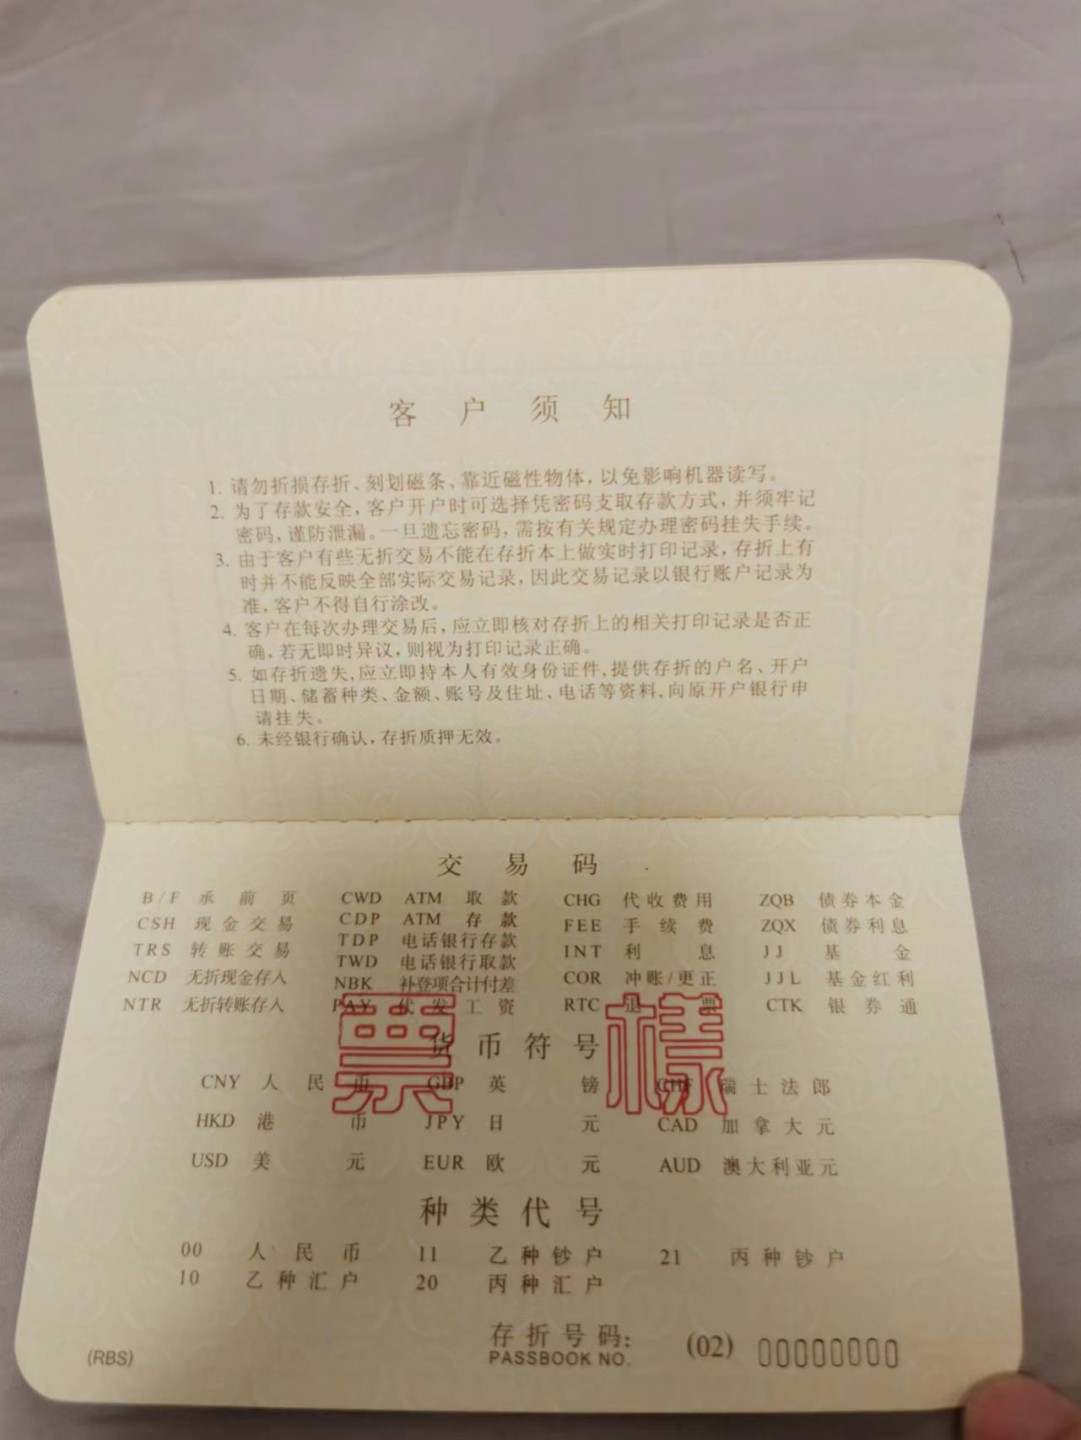 客户须知
1. 请勿折损存折、刻划磁条、靠近磁性物体，以免影响机器读写。
2. 为了存款安全，客户开户时可选择凭密码支取存款方式，并须牢记
密码，谨防泄漏。一旦遗忘密码，需按有关规定办理密码挂失手续。
3. 由于客户有些无折交易不能在存折本上做实时打印记录，存折上有
时并不能反映全部实际交易记录，因此交易记录以银行账户记录为
准，客户不得自行涂改。
4. 客户在每次办理交易后，应立即核对存折上的相关打印记录是否正
确，若无即时异议，则视为打印记录正确。
5. 如存折遗失，应立即持本人有效身份证件，提供存折的户名、开户
日期、储蓄种类、金额、账号及住址、电话等资料，向原开户银行申
请挂失。
6. 未经银行确认，存折质押无效。
交易码
B/F 承前页 CWD ATM取款 CHG 代收费用 ZQB 债券本金
CSH 现金交易 CDP ATM存款 FEE 手续费 ZQX 债券利息
TRS 转账交易 TDP 电话银行存款 INT 利息 JJ 基金
NCD 无折现金存入 TWD 电话银行取款 COR 冲账/更正 JJL 基金红利
NTR 无折转账存入 NBK 补登项合计付差 RTC 退票 CTK 银券通
PAY 代发工资
票樣
货币符号
CNY 人民币 GBP 英镑 CHF 瑞士法郎
HKD 港币 JPY 日元 CAD 加拿大元
USD 美元 EUR 欧元 AUD 澳大利亚元
种类代号
00 人民币 11 乙种钞户 21 丙种钞户
10 乙种汇户 20 丙种汇户
存折号码：
PASSBOOK NO. (02) 00000000
(RBS)